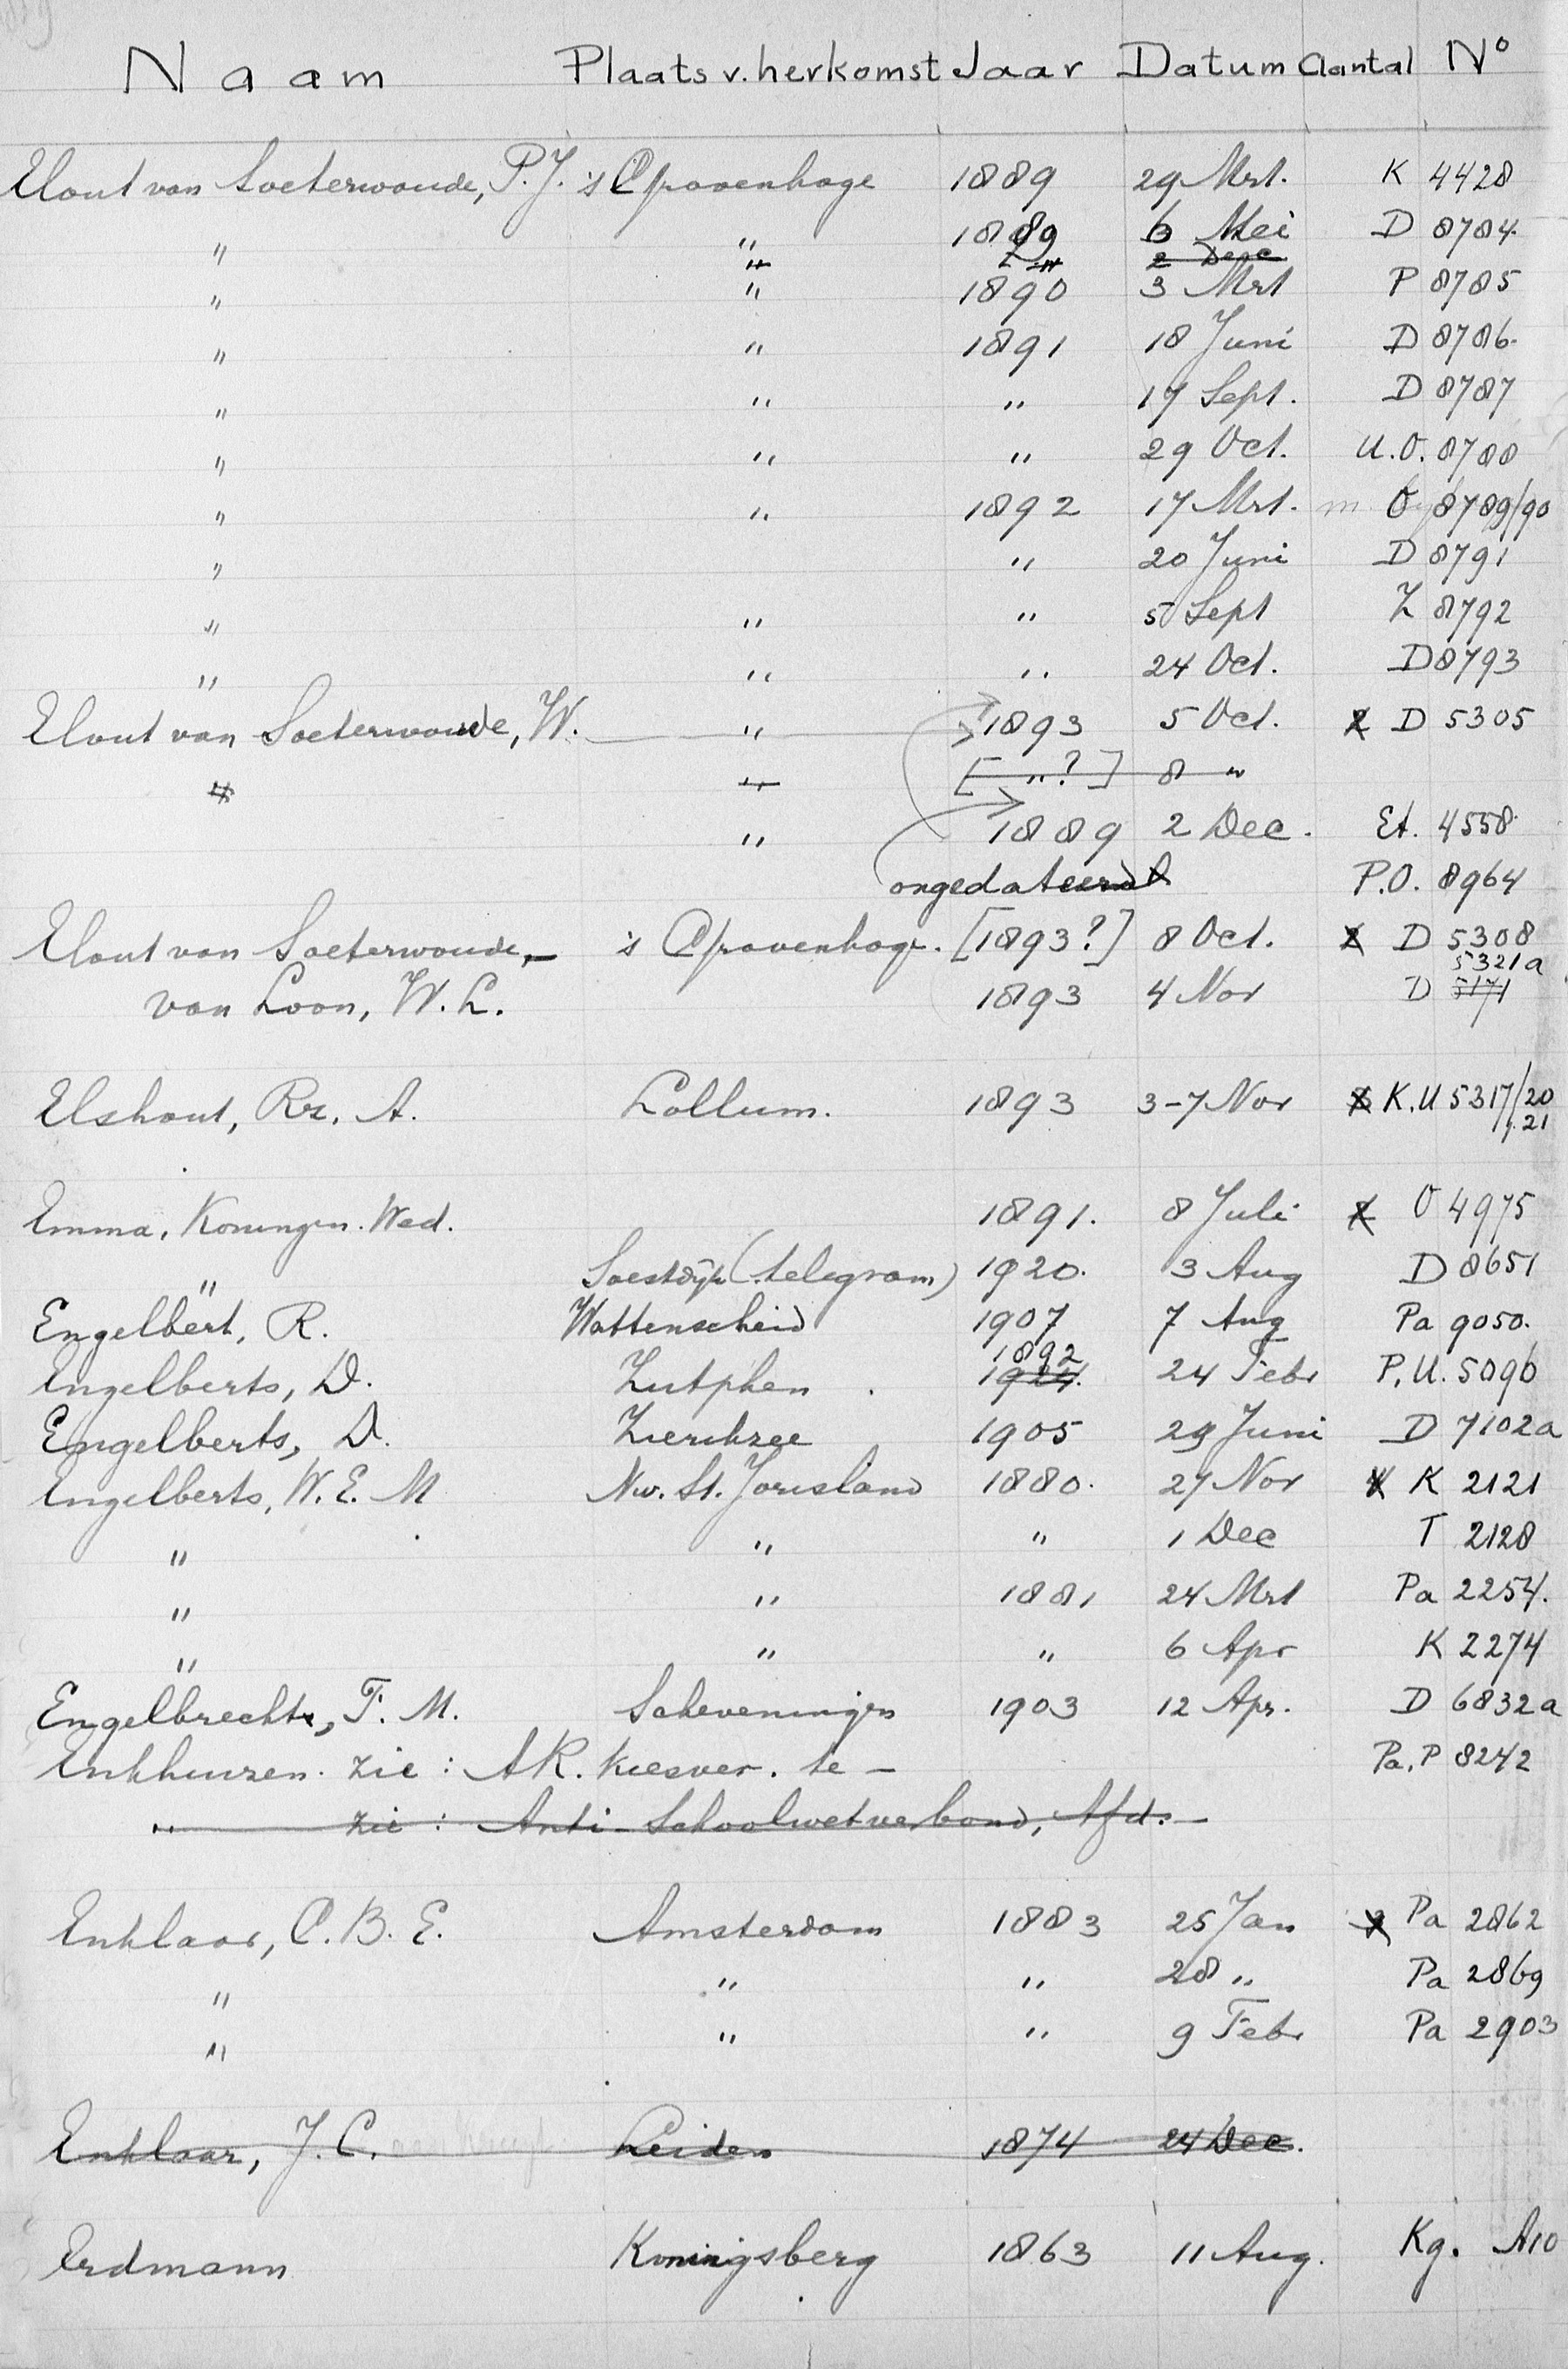 Naam Plaats v. herkomst Jaar Datum Aantal No
Elout van Soeterwoude, P.J. 's Gravenhage 1889 29 Mrt. K 4428
" " 1889 6 Mei D 8784
" " 2 Dec
" " 1890 3 Mrt P 8785
" " 1891 18 Juni D 8786
" " " 17 Sept. D 8787
" " " 29 Oct. U.O. 8788
" " 1892 17 Mrt. O 8789/90
" " 20 Juni D 8791
" " " 5 Sept Z 8792
" " " 24 Oct. D 8793
Elout van Soeterwoude, W. " 1893 5 Oct. 2 D 5305
" " [ " ? ] 8 "
" 1889 2 Dec. Et. 4558
ongedateerd P.O. 8964
Elout van Soeterwoude, – 's Gravenhage. [1893?] 8 Oct. 2 D 5308
5321a
van Loon, W.L. 1893 4 Nov D 5171
Elshout, Rz. A. Lollum. 1893 3-7 Nov K.U 5317/20
21
Emma, Koningin. Wed. 1891. 8 Juli 2 O 4975
" Soestdijk (telegram) 1920. 3 Aug D 8651
Engelbert, R. Wattenscheid 1907 7 Aug Pa 9050.
1892
Engelberts, D. Zutphen 1924. 24 Febr P.U. 5096
Engelberts, D. Zierikzee 1905 29 Juni D 7102a
Engelberts, W.E.M Nw. St. Jorisland 1880. 27 Nov 4 K 2121
" " " 1 Dec T 2128
" " 1881 24 Mrt Pa 2254.
" " " 6 Apr K 2274
Engelbrecht, F. M. Scheveningen 1903 12 Apr. D 6832a
Enkhuizen. zie : AR. Kiesver. te – Pa. P 8242
" zie : Anti-Schoolwetverbond, Afd. –
Enklaar, C. B. E. Amsterdam 1883 25 Jan 3 Pa 2862
" " " 28 " Pa 2869
" " " 9 Febr Pa 2903
Enklaar, J. C. Leiden 1874 24 Dec.
Erdmann Koningsberg 1863 11 Aug. Kg. A10